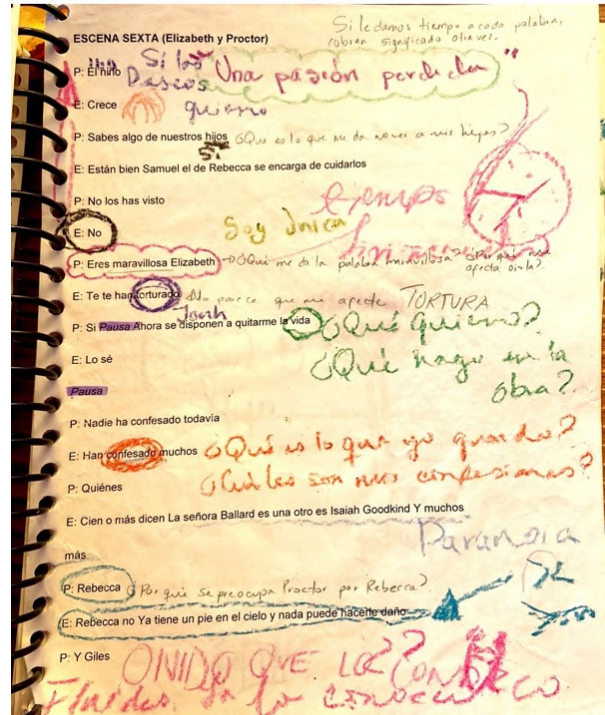 Si le damos tiempo a cada palabra,
cobran significado otra vez.
ESCENA SEXTA (Elizabeth y Proctor)
P: El niño
Si las
Deseos
Una pasión perdida"
E: Crece
quiero
P: Sabes algo de nuestros hijos ¿Que es lo que me da a mis hijos?
Sí
E: Están bien Samuel el de Rebecca se encarga de cuidarlos
P: No los has visto
tiempo
E: No
Soy Unica
P: Eres maravillosa Elizabeth → ¿Qué me da la palabra maravillosa? ¿Por qué me
afecta oirla?
E: Te te han torturado No parece que me afecte TORTURA
P: Si Pausa Ahora se disponen a quitarme la vida
¿Qué quiero?
E: Lo sé
¿Qué hago en la
obra?
Pausa
P: Nadie ha confesado todavía
E: Han confesado muchos
¿Qué es lo que yo guardo?
P: Quiénes
¿Cuáles son mis confesiones?
E: Cien o más dicen La señora Ballard es una otro es Isaiah Goodkind Y muchos
más
Paranoia
P: Rebecca ¿Por qué se preocupa Proctor por Rebecca?
E: Rebecca no Ya tiene un pie en el cielo y nada puede hacerle daño
P: Y Giles
QUE